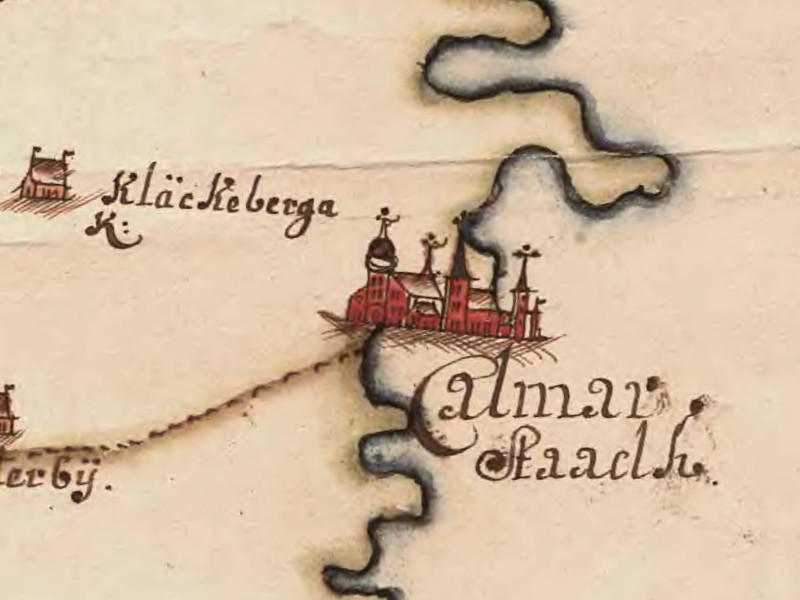 Kläckeberga
K:
Calmar
Staadh.
terbÿ.